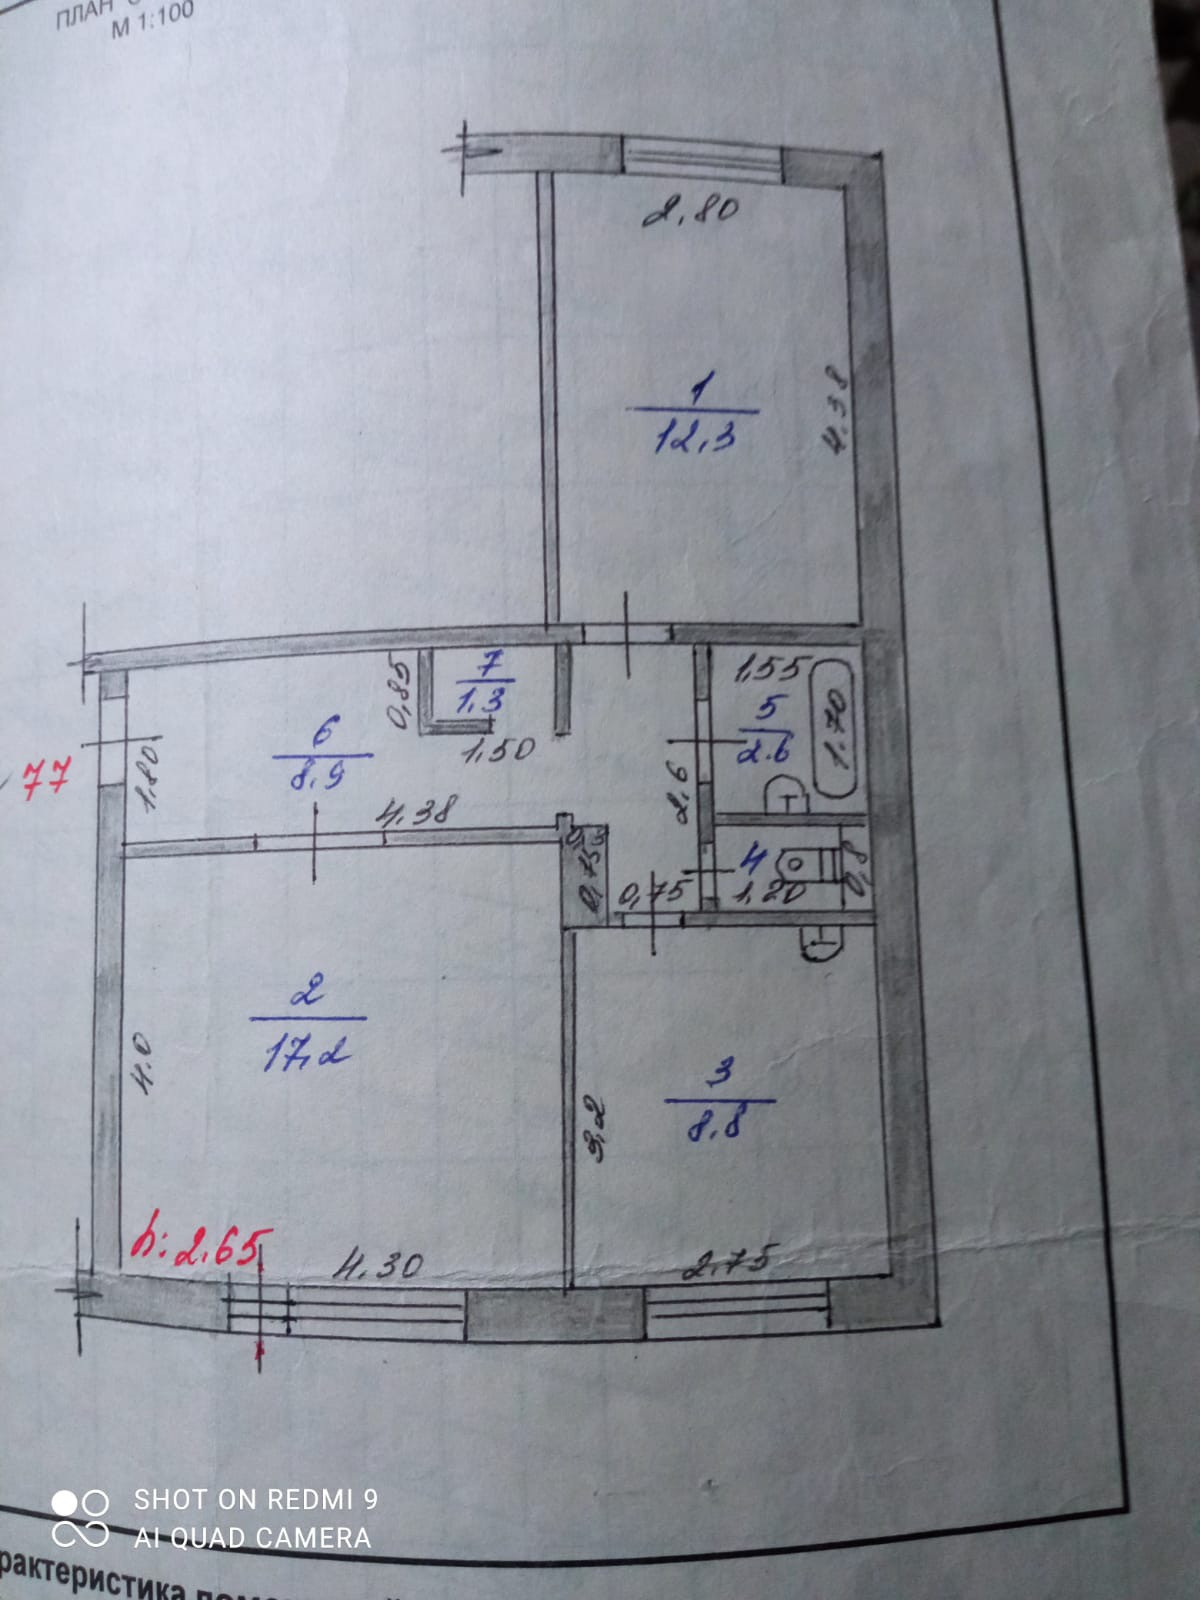 ПЛАН
М 1:100
2,80
1
12,3
4.38
7
1,3
0,85
1,50
6
8,9
1,80
77
4.38
1,55
5
2.6
1.70
2,6
4
1,20
0,8
0,75
2
17,2
4.0
3
8.8
3,2
h: 2.65
4.30
2.75
SHOT ON REDMI 9
AI QUAD CAMERA
рактеристика